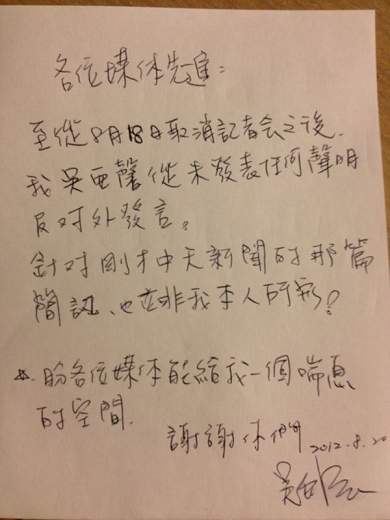 各位媒体先進：
至從8月18日取消記者会之後.
我吳亞馨從未發表任何聲明
及对外發言。
針对剛才中天新聞的那篇
簡訊、也並非我本人所形?
☆. 盼各位媒体能給我一個喘息
的空間.
謝謝你們 2012.8.20
吳亞馨